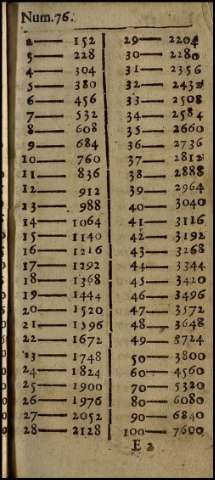 Num.76.
2— 152
3— 228
4— 304
5— 380
6— 456
7— 532
8— 608
9— 684
10— 760
11— 836
12— 912
13— 988
14— 1064
15— 1140
16— 1216
17— 1292
18— 1368
19— 1444
20— 1520
21— 1596
22— 1672
23— 1748
24— 1824
25— 1900
26— 1976
27— 2052
28— 2128
29— 2204
30— 2280
31— 2356
32— 2432
33— 2508
34— 2584
35— 2660
36— 2736
37— 2812
38— 2888
39— 2964
40— 3040
41— 3116
42— 3192
43— 3268
44— 3344
45— 3420
46— 3496
47— 3572
48— 3648
49— 3724
50— 3800
60— 4560
70— 5320
80— 6080
90— 6840
100— 7600
E 2